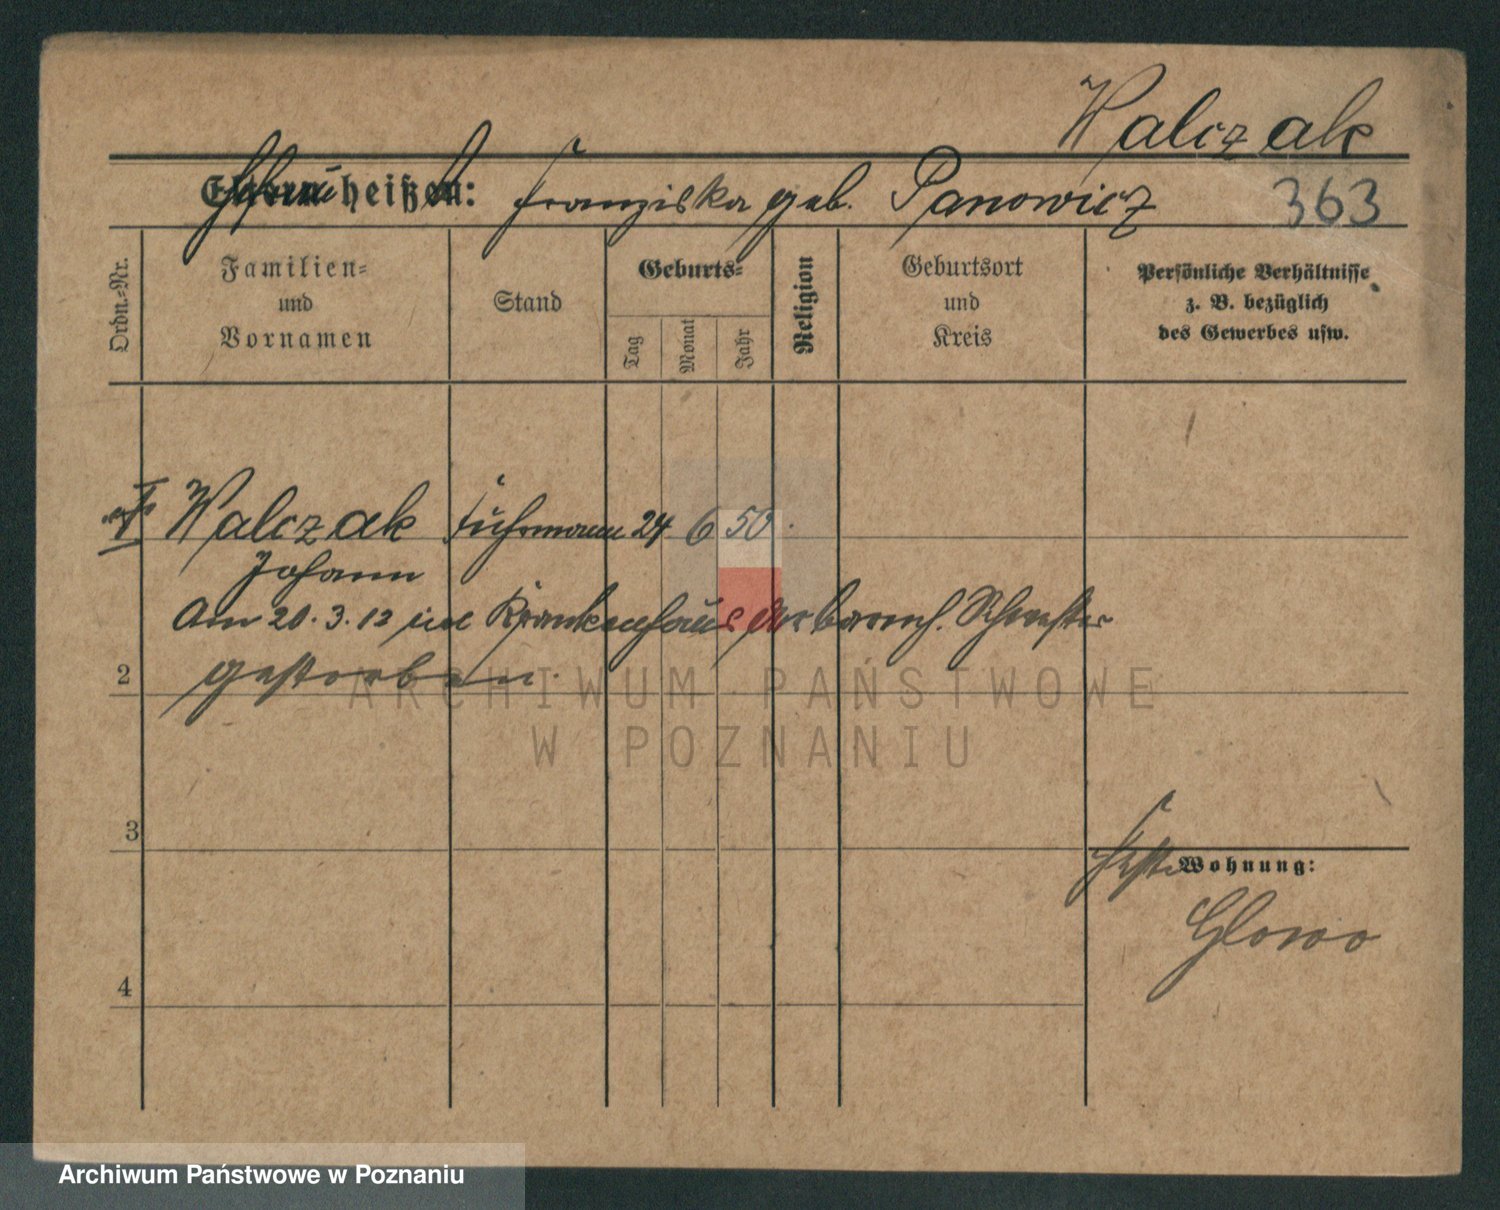 Walczak
Eltern heißen: Franziska geb. Panowicz 363
Ordn.=Nr.
Familien=
und
Vornamen
Stand
Geburts=
Tag
Monat
Jahr
Religion
Geburtsort
und
Kreis
Persönliche Verhältnisse
z. B. bezüglich
des Gewerbes usw.
Walczak Fuhrmann 24 6 50.
Johann
Am 20.3.12 im Krankenhaus der barmh. Schwester
2 gestorben.
ARCHIWUM PAŃSTWOWE
W POZNANIU
3
Wohnung:
Glowno
4
Archiwum Państwowe w Poznaniu